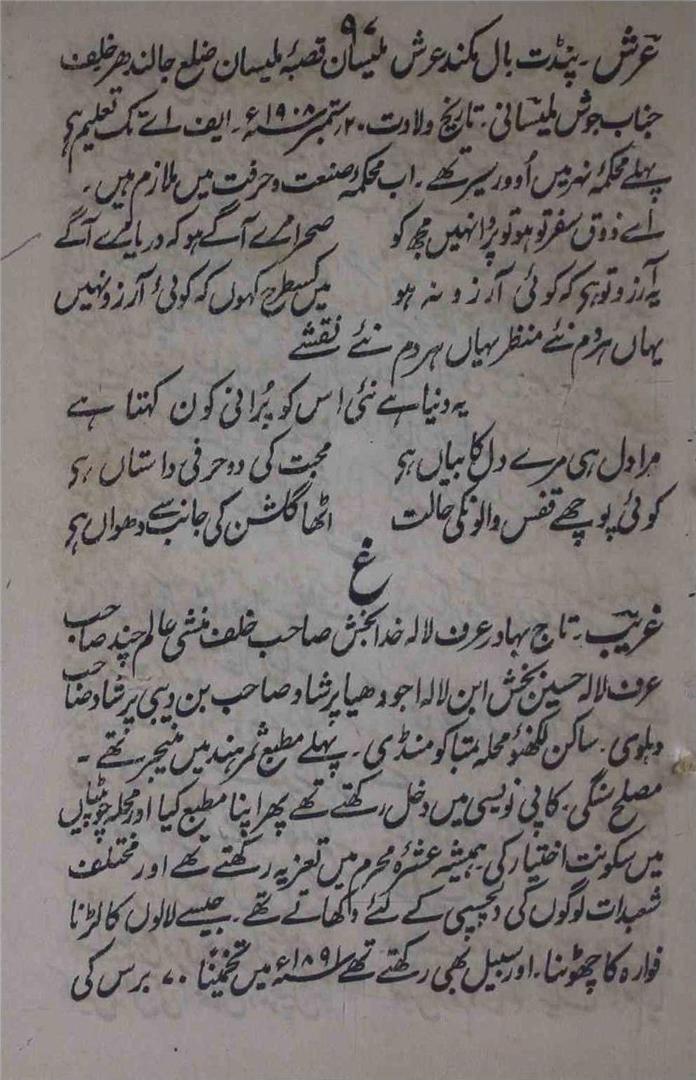 ۹۷
عرش۔ پنڈت بال مکند عرش ملیسان قصبۂ ملیسان ضلع جالندھر خلف
جناب جوش ملیسانی۔ تاریخ ولادت ۲۰ ستمبر ۱۹۰۸ء۔ ایف اے تک تعلیم ہے
پہلے محکمۂ نہر میں اُوورسیر تھے۔ اب محکمۂ صنعت و حرفت میں ملازم ہیں۔
اے ذوق سفر تو ہو تو پروا نہیں مجھ کو صحرا مرے آگے ہو کہ دریا مرے آگے
یہ آرزو تو ہے کہ کوئی آرزو نہ ہو میں کسطرح کہوں کہ کوئی آرزو نہیں
یہاں ہردم نئے منظر یہاں ہردم نئے نقشے
یہ دنیا ہے نئی اس کو پُرانی کون کہتا ہے
مرا دل ہی مرے دل کا بیاں ہے محبت کی دو حرفی داستاں ہے
کوئی پوچھے قفس والونکی حالت اٹھا گلشن کی جانب سے دھواں ہے
غ
غریب۔ تاج بہادر عرف لالہ خدا بخش صاحب خلف منشی عالم چند صاحب
عرف لالہ حسین بخش ابن لالہ اجودھیا پرشاد صاحب بن دیبی پرشاد صاحب
دہلوی۔ ساکن لکھنؤ محلہ متباکو منڈی۔ پہلے مطبع ثمر ہند میں منیجر تھے۔
مصلح سنگی۔ کاپی نویسی میں دخل رکھتے تھے پھر اپنا مطبع کیا اور محلہ چوپٹیاں
میں سکونت اختیار کی ہمیشہ عشرۂ محرم میں تعزیہ رکھتے تھے اور مختلف
شعبدات لوگوں کی دلچسپی کے لئے دکھاتے تھے۔ جیسے لالوں کا لڑنا
فوارہ کا چھوٹنا۔ اور سبیل بھی رکھتے تھے ۱۸۹۱ء میں تخمیناً ۷۰ برس کی